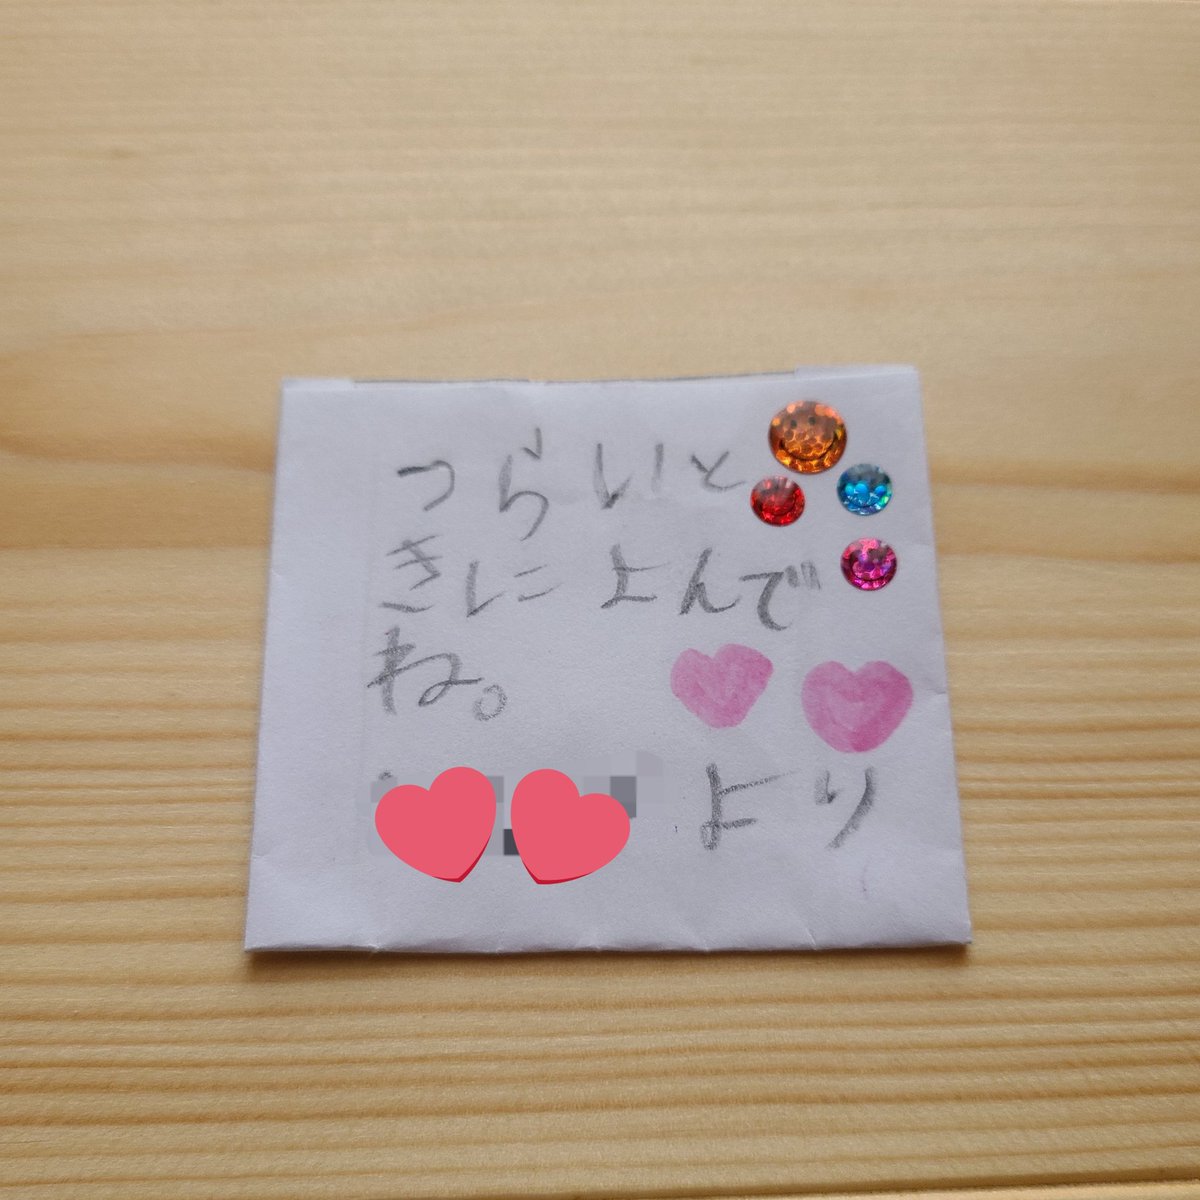 つらいと
きによんで
ね。
より